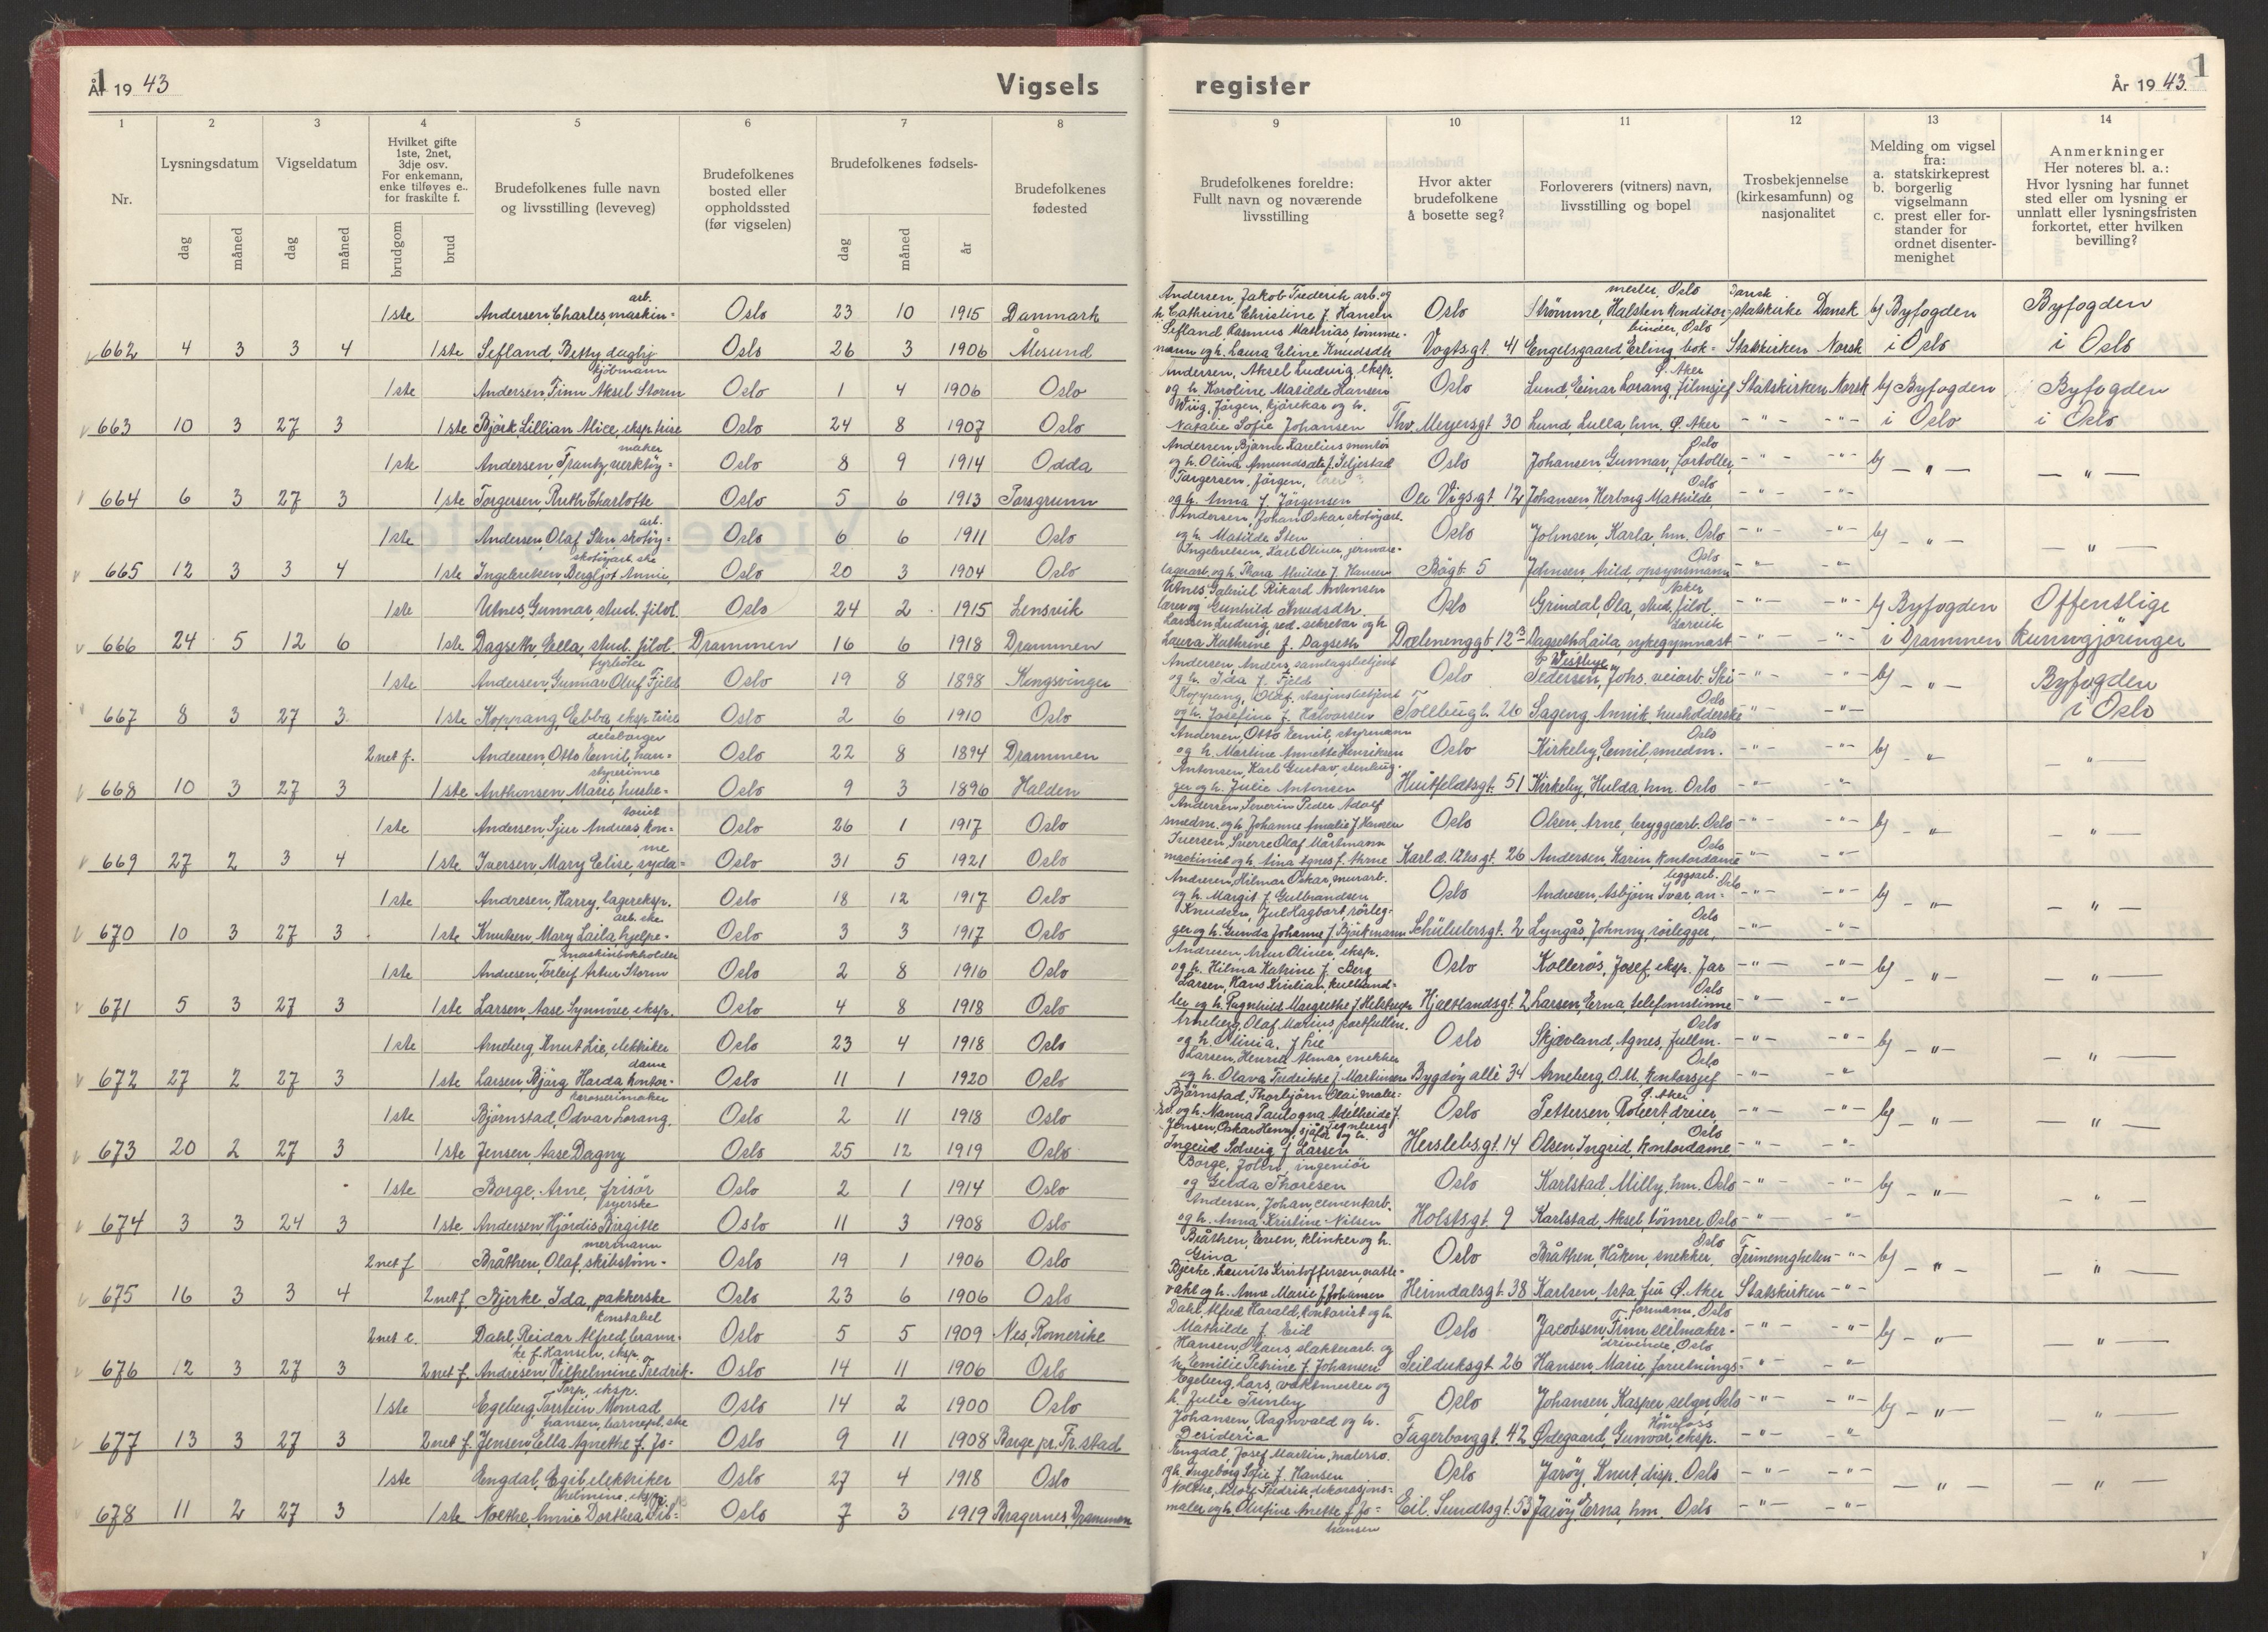 1
År 19 43
Vigsels
1 2 3 4 5 6 7 8
Nr.
Lysningsdatum
dag måned
Vigseldatum
dag måned
Hvilket gifte
1ste, 2net,
3dje osv.
For enkemann,
enke tilføyes e..
for fraskilte f.
brudgom brud
Brudefolkenes fulle navn
og livsstilling (leveveg)
Brudefolkenes
bosted eller
oppholdssted
(før vigselen)
Brudefolkenes fødsels-
dag måned år
Brudefolkenes
fødested
arb.
1ste Andersen, Charles, maskin= Oslo 23 10 1915 Danmark
662 4 3 3 4 1ste Sefland, Betty daglig Oslo 26 3 1906 Ålesund
kjøbmann
1ste Andersen, Finn Aksel Storm Oslo 1 4 1906 Oslo
663 10 3 27 3 1ste Björk Lillian Alice, eksp.trise Oslo 24 8 1907 Oslo
maker
1ste Andersen, Frantz verktöy= Oslo 8 9 1914 Odda
664 6 3 27 3 1ste Torgersen, Ruth Charlotte Oslo 5 6 1913 Porsgrunn
arb.
1ste Andersen, Olaf Sten skotöy= Oslo 6 6 1911 Oslo
skotöyarb.ske
665 12 3 3 4 1ste Ingebretsen, Bergljot Annie, Oslo 20 3 1904 Oslo
1ste Utnes, Gunnar, stud. filol. Oslo 24 2 1915 Lensvik
666 24 5 12 6 1ste Dagseth, Ella, stud. filol. Drammen 16 6 1918 Drammen
fyrböter
1ste Andersen, Gunnar Oluf Fjeld Oslo 19 8 1898 Kongsvinger
667 8 3 27 3 1ste Koppang, Ebba, eksp.trise Oslo 2 6 1910 Oslo
delsborger
2net f. Andersen, Otto Emil, han= Oslo 22 8 1894 Drammen
styrerinne
668 10 3 27 3 1ste Anthonsen, Marie, husbe= Oslo 9 3 1896 Halden
torist
1ste Andersen, Sjur Andreas, kon= Oslo 26 1 1917 Oslo
me
669 27 2 3 4 1ste Iversen, Mary Elise, syda= Oslo 31 5 1921 Oslo
1ste Andresen, Harry, lagereksp. Oslo 18 12 1917 Oslo
arb.ske
670 10 3 27 3 1ste Knutsen, Mary Laila, hjelpe= Oslo 3 3 1917 Oslo
maskinbokholder
1ste Andresen, Torleif Artur Storm Oslo 2 8 1916 Oslo
671 5 3 27 3 1ste Larsen, Aase Synnöve, eksp. Oslo 4 8 1918 Oslo
1ste Arneberg, Knut Lie, elektriker Oslo 23 4 1918 Oslo
dame
672 27 2 27 3 1ste Larsen, Bjørg Harda kontor= Oslo 11 1 1920 Oslo
karosserimaker
1ste Björnstad, Odvar Lorang, Oslo 2 11 1918 Oslo
673 20 2 27 3 1ste Jensen, Aase Dagny Oslo 25 12 1919 Oslo
1ste Borge, Arne, frisör Oslo 2 1 1914 Oslo
syerske
674 3 3 24 3 1ste Andersen Hjördis Birgitte Oslo 11 3 1908 Oslo
mermann
2net f Bråthen, Olaf, skibstöm= Oslo 19 1 1906 Oslo
675 16 3 3 4 2net f. Bjerke, Ida, pakkerske Oslo 23 6 1906 Oslo
konstabel
2net e. Dahl, Reidar Alfred brann= Oslo 5 5 1909 Nes, Romerike
ke f. Hansen, eksp.
676 12 3 27 3 2net f. Andresen Vilhelmine Fredrik= Oslo 14 11 1906 Oslo
Torp, eksp.
1ste Egeberg, Torstein Monrad Oslo 14 2 1900 Oslo
hansen, barnepl.ske
677 13 3 27 3 2net f. Jensen Ella Agnethe f. Jo= Oslo 9 11 1908 Borge pr. Fr.stad
1ste Engdal, Egil elektriker Oslo 27 4 1918 Oslo
678 11 2 27 3 1ste Noethe, Anna Dorthea Vil= Oslo 7 3 1919 Bragernes, Drammen
register
År 19 43.
1
9 10 11 12 13 14
Brudefolkenes foreldre:
Fullt navn og noværende
livsstilling
Hvor akter
brudefolkene
å bosette seg?
Forloverers (vitners) navn,
livsstilling og bopel
Trosbekjennelse
(kirkesamfunn) og
nasjonalitet
Melding om vigsel
fra:
a. statskirkeprest
b. borgerlig
vigselmann
c. prest eller for-
stander for
ordnet disenter-
menighet
Anmerkninger
Her noteres bl. a.:
Hvor lysning har funnet
sted eller om lysning er
unnlatt eller lysningsfristen
forkortet, etter hvilken
bevilling?
Andersen, Jakob Frederik arb. og mester, Oslo Dansk
h. Cathrine Christine f. Hansen Oslo Strömme, Halsten konditor= statskirke Dansk b) Byfogden Byfogden
Sefland Rasmus Mathias, tömmer= binder, Oslo
mann og h. Laura Eline Knudsdtr Vogtsgt. 41 Engelsgaard Erling bok= Statskirken Norsk i Oslo i Oslo
Andersen, Aksel Ludvig, eksp. Ø. Aker
og h. Karoline Matilde Hansen Oslo Lund, Einar Lorang, filmsjef Statskirken Norsk b) Byfogden Byfogden
Wiig, Jörgen, kjörekar og h.
Natalie Sofie Johansen Thv. Meyersgt 30 Lund, Lulla, hm. Ø. Aker -"- -"- i Oslo i Oslo
Andersen, Bjarne Karelius montör Oslo
og h. Olina Amundsdtr f. Seljestad Oslo Johansen Gunnar, fortoller, -"- -"- b) -"- -"-
Torgersen, Jörgen, Oslo
og h. Anna f. Jörgensen Ole Vigsgt 12 Johansen, Herborg Mathilde, -"- -"-
Andersen, Johan Oskar, skotöyarb.
og h. Matilde Sten Oslo Johnsen, Karla, hm. Oslo -"- -"- b) -"- -"-
Ingebretsen, Karl Oliver, jernvare= Oslo
lagerarb. og h. Thora Alvilde f. Hansen Bögt. 5 Johnsen Arild, opsynsmann -"- -"-
Utnes, Gabriel Rikard Antonsen Asker
lærer og Gunhild Knudsdtr. Oslo Grindal, Ola, stud. filol. -"- -"- b) Byfogden Offentlige
Larssen Ludvig, red. sekretær og h.
Laura Kathrine f. Dagseth Dælenenggt. 12 Dagseth Laila, sykegymnast -"- -"- i Drammen kunngjöringer
Andersen, Anders, samlagsbetjent Westbye
og h. Ida f. Fjeld Oslo Pedersen, Johs. veiarb. Ski -"- b) -"- Byfogden
Koppang, Olaf, stasjonsbetjent Oslo
og h. Josefine f. Halvorsen Tollbugt. 26 Sageng Annik, husholderske -"- -"- i Oslo
Andersen, Otto Emil, styrmann Oslo
og h. Martine Annette Henriksen Oslo Kirkeby, Emil, smedm. -"- -"- b) -"- -"-
Antonsen, Karl Gustav, stenhug=
ger og h. Julie Antonsen Huitfeldtsgt. 51 Kirkeby, Hulda, hm. Oslo -"- -"-
Andersen, Severin Peder Adolf
smedm. og h. Johanne Amalie f. Hansen Oslo Olsen, Arne, bryggearb. Oslo -"- -"- b) -"- -"-
Iversen, Sverre Olaf Mårtmann Oslo
maskinist og h. Lina Agnes f. Arne Karl d. 12tes gt. 26 Andersen, Karin, kontordame -"- -"-
Andresen, Hilmar Oskar, murarb. leggsarb. Oslo
og h. Margit f. Gulbrandsen Oslo Andresen, Asbjörn Ivar, an= -"- -"- b) -"- -"-
Knudsen, Jul Hagbart, rörleg= Oslo
ger og h. Gunda Johanne f. Björkmann Schüblersgt. 2 Lyngås, Johnny, rörlegger, -"- -"-
Andresen, Artur Oliver, eksp.
og h. Hilma Katrine f. Berg Oslo Kollerös, Josef, eksp. Jar -"- -"- b) -"- -"-
Larsen, Hans Kristian, kullhand= Oslo
ler og h. Ragnhild Margrethe f. Helstrup Hjaltlandsgt. 2 Larsen, Erna, telefonistinne -"- -"-
Arneberg, Olaf Marius, postfullm. Oslo
og h. Olivia f. Lie Oslo Skjævland, Agnes, fullm. -"- -"- b) -"- -"-
Larsen, Henrik Almar snekker Oslo
og h. Olava Fredrikke f. Martinsen Bygdöy allè 34 Arneberg, O.M., kontorsjef -"- -"-
Björnstad, Thorbjörn Olai maler= Ø. Aker
sv. og h. Nanna Paulogna Adelheide f. Oslo Pettersen, Robert, dreier, -"- -"- b) -"- -"-
Jensen, Oskar Henry, sjåfør og h. Tegnberg Oslo
Ingerid Solveig f Larsen Herslebsgt 14 Olsen, Ingrid, kontordame -"- -"-
Borge, John, ingeniör
og Gerda Thoresen Oslo Karlstad, Milly, hm. Oslo -"- -"- b) -"- -"-
Andersen, Johan, cementarb.
og h. Anna Kristine Nilsen Holstsgt. 9 Karlstad, Aksel, tömrer, Oslo -"- -"-
Bråthen, Even, klinker og h. Oslo
Gina Oslo Bråthen, Håken, snekker, Treenigheten -"- b) -"- -"-
Bjerke, Laurits Kristoffersen, natte=
vakt og h. Anne Marie f. Johansen Heimdalsgt. 38 Karlsen, Asta frü Ø. Aker Statskirken -"-
Dahl, Alfred Harald, kontorist og h. formann, Oslo
Mathilde f. Eid Oslo Jacobsen, Finn seilmaker= -"- -"- b) -"- -"-
Hansen, Klaus, slakterarb. og drivende, Oslo
h. Emilie Petrine f. Johansen Seilduksgt 26 Hansen, Marie, forretnings= -"- -"-
Egeberg, Lars, vaktmester og
h. Julie Trinby Oslo Johansen, Kasper selger, Oslo -"- -"- b) -"- -"-
Johansen, Ragnvald og h. Hönefoss
Desideria Fagerborggt. 42 Ødegaard, Gunvor eksp. -"- -"-
Engdal, Josef Martin, malersv.
og h. Ingeborg Sofie f. Hansen Oslo Jaröy, Knut, disp. Oslo -"- -"- -"- -"-
Noethe, Adolf Fredrik, dekorasjons=
maler og h. Olufine Anette f. Jo= Eil. Sundtsgt. 53 Jaröy, Erna, hm. Oslo -"- -"-
hansen